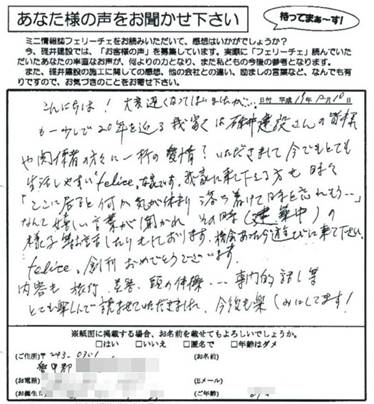 あなた様の声をお聞かせ下さい
待ってまぁ～す!
ミニ情報誌フェリーチェをお読みいただいて、感想はいかがでしょうか?
今、碓井建設では、「お客様の声」を募集しています。実際に「フェリーチェ」読んでいた
だいたあなたの率直なお声が、何よりの力となり、また私どもの今後の参考となります。
また、碓井建設の施工に関しての感想、他の会社との違い、励ましの言葉など、なんでも有
りですので、お気づきのことをお寄せ下さい。
こんにちは! 大変遅くなってしまいましたが…
日付 平成19年 月10日
もう少しで20年を迎える我家は碓井建設さんの皆様
や関係者の方々に一杯の愛情をいただきまして今でもとても
生活しやすいfelice、な家です。我家に来て下さる方も時々
「ここに居ると何か気が休まり落ち着けて時を忘れちゃう…」
なんて嬉しい言葉が聞かれ その時(建築中)の
様子をお話ししたりもしております。機会あれば遊びに来て下さい。
felice、創刊おめでとうございます
内容も旅行、頭の体操…専門的話し等
とても楽しんで読ませていただきました。今後も楽しみにしてます!
※紙面に掲載する場合、お名前を載せてもよろしいでしょうか。
□はい □いいえ □匿名で □年齢はダメ
(ご住所)〒243-0301
愛甲郡
(お名前)
(お電話)
(Eメール)
(お誕生
(ご年齢)